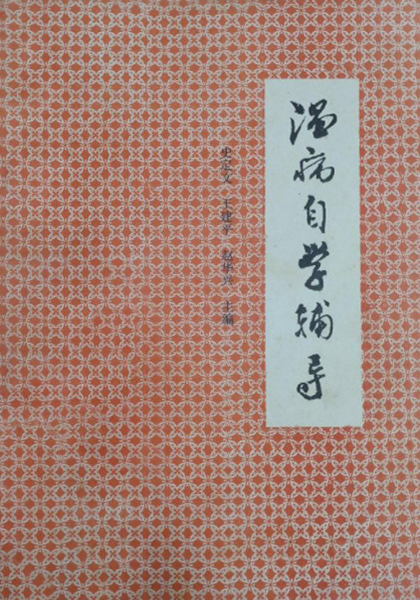 温病自学辅导
史定文 王建平 赵华兴 主编